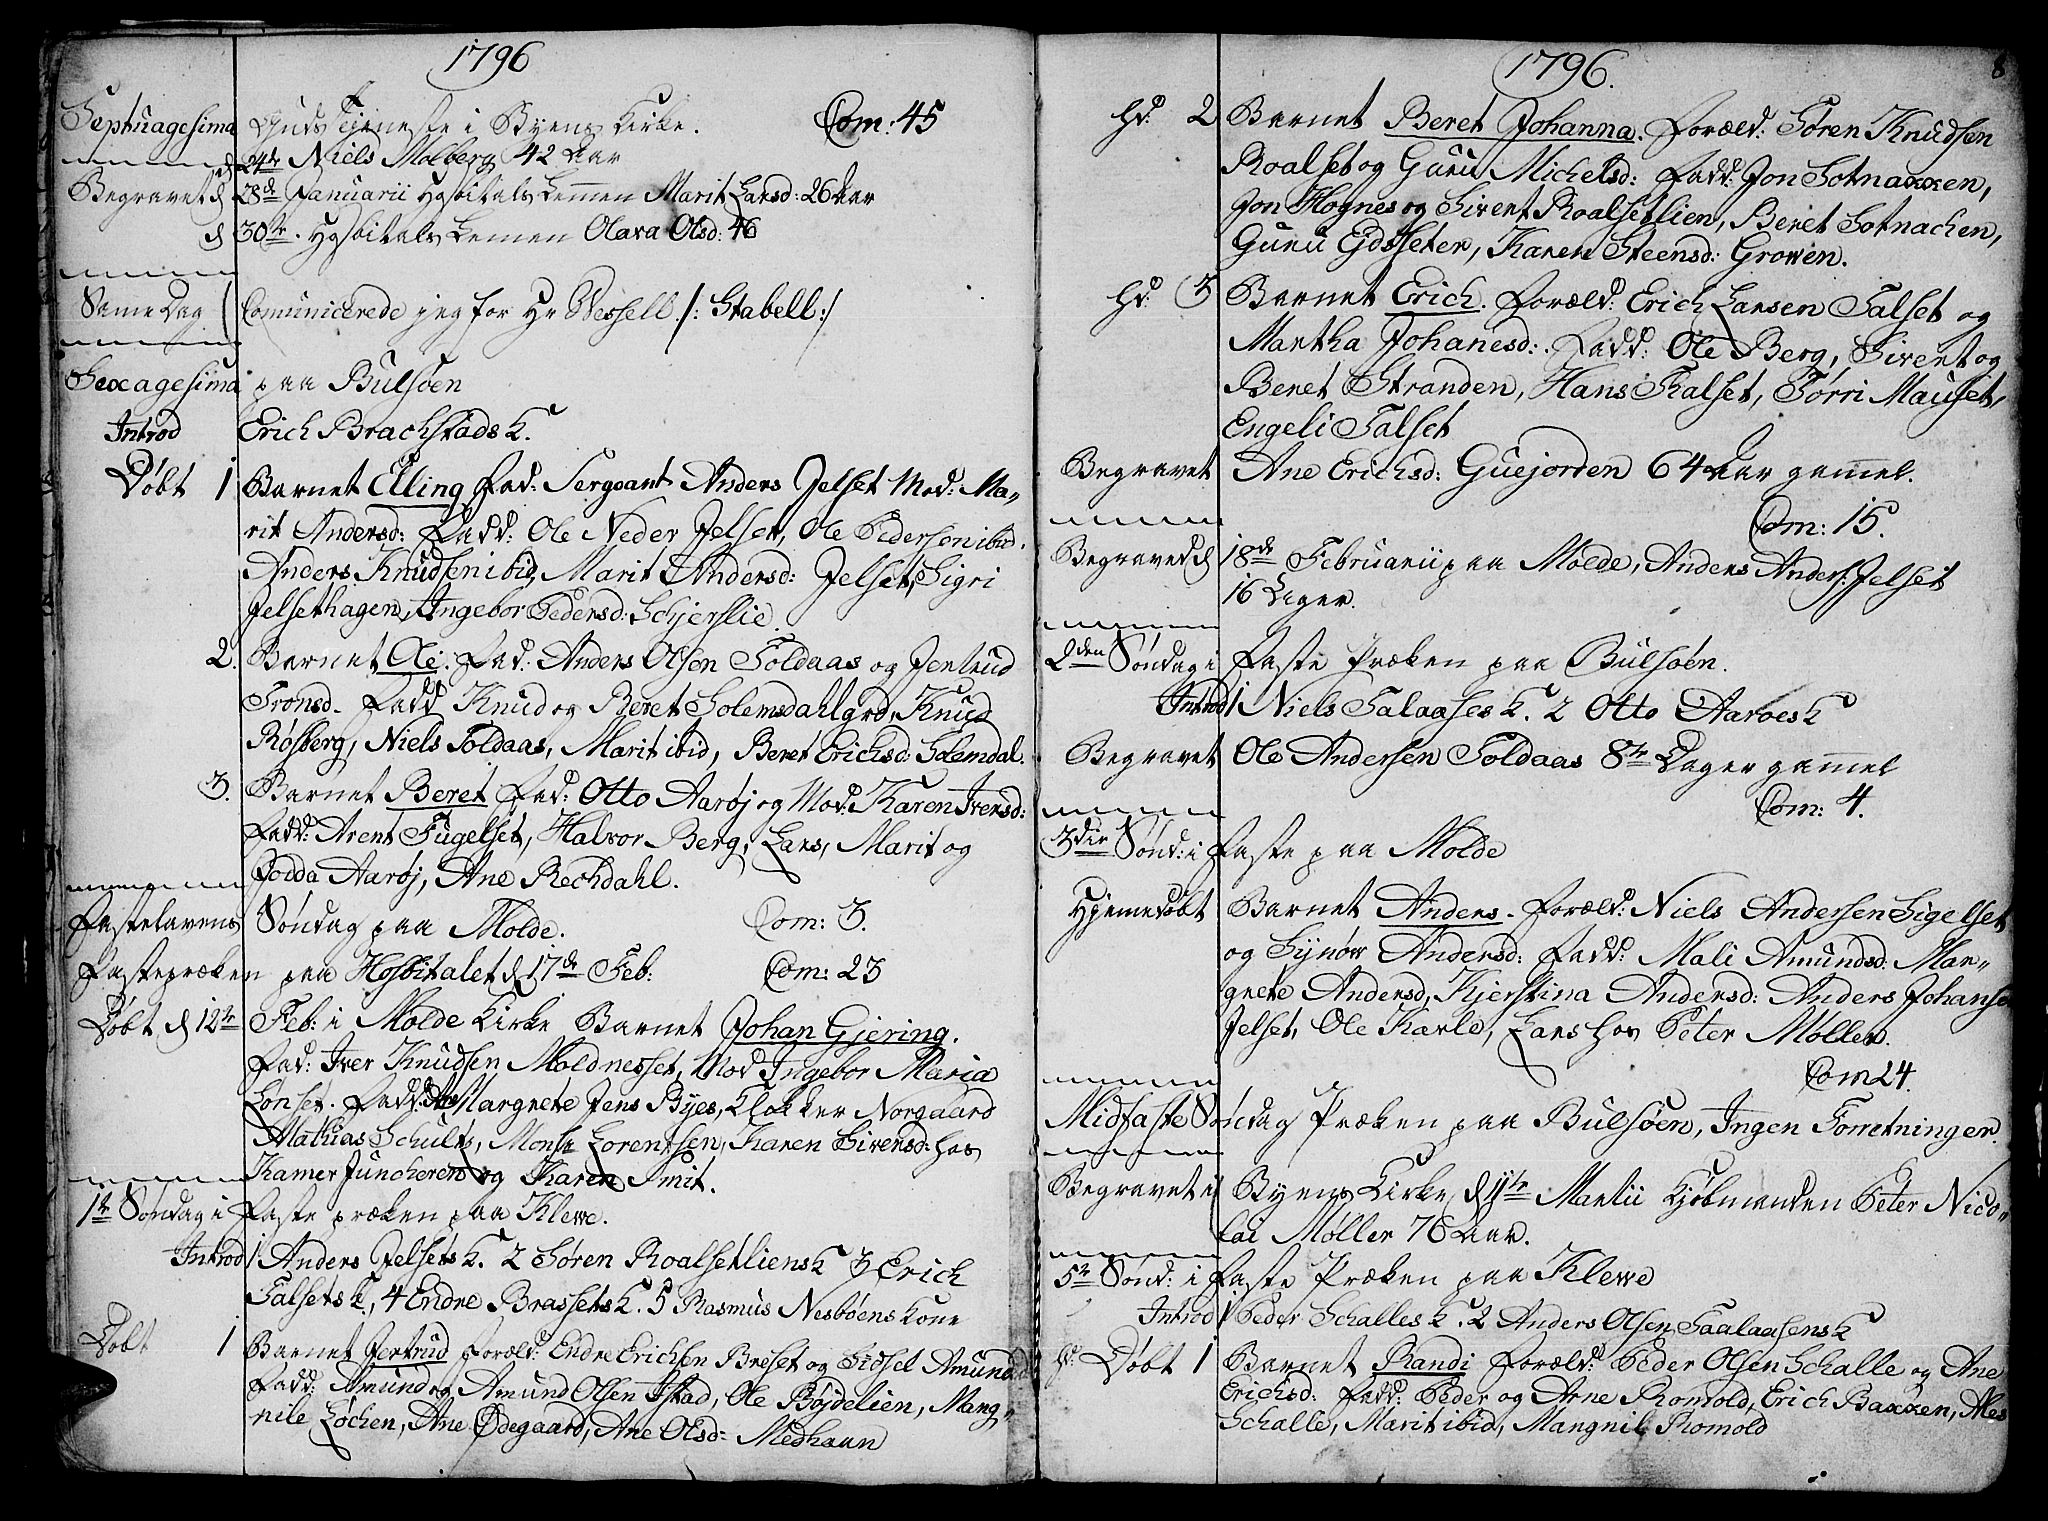 1796
Septuagesima Guds Tjeneste i Byens Kirke. Com: 45
d 24de Niels Molberg 42 Aar
Begravet d 28de Januarii Hospitals Lemmen Marit Larsd: 26 Aar
d 30te. Hospitals Lemen Olava Olsd: 46
Same Dag Comunicerede jeg for Hr Wessell /: Stabell :/
Sexagesima paa Bulsøen
Introd Erich Brachstads K.
Døbt 1 Barnet Elling Fad: Sergeant Anders Jelset Mod: Ma-
rit Andersd: Fadd: Ole Neder Jelset, Ole Pedersen ibid.
Anders Knudsen ibid, Marit Andersd: Jelset, Sigri
Jelsethagen, Ingebor Pedersd: Schjerslie.
2. Barnet Ole. Fad: Anders Olsen Toldaas og Jertrud
Tronsd. Fadd Knud og Beret Solemsdahlgrd, Knud
Røsberg, Niels Toldaas, Marit ibid, Beret Erichsd: Solemdal.
3. Barnet Beret Fad: Otto Aarøj og Mod: Karen Iversd:
Fadd: Arent Fugelset, Halvor Berg, Lars, Marit og
Jodda Aarøj, Ane Rechdahl.
Fastelavens Søndag paa Molde. Com: 3.
Fastepræken paa Hosbitalet d 17de Feb: Com: 23
Døbt d 12te Feb: i Molde Kirke Barnet Johan Gjering.
Fad: Iver Knudsen Moldnesset, Mod Ingebor Maria
Sønset. Fadd: Margrete Jens Byes, Klokker Norgaard
Mathias Schult, Monse Lorentsen, Karen Siversd: hos
Kamer Junckeren og Karen Smit.
1te Søndag i Faste præken paa Klewe.
Introd 1 Anders Jelsets K. 2 Søren Roalsetliens K 3 Erich
Talsets K, 4 Endre Brassets K. 5 Rasmus Nesbøens Kone
Døbt 1 Barnet Jertrud Foræld: Endre Erichsen Breset og Sidsel Amundsd
Fadd: Amund og Amund Olsen Istad, Ole Bøjdelien, Mang-
nile Løchen, Ane Ødegaard, Ane Olsd: Medhaun
1796. 8
Hd: 2 Barnet Beret Johanna. Foræld: Søren Knudsen
Roalset og Guru Michelsd: Fadd: Jon Sotnakken,
Jon Hognes og Sivert Roalsetlien, Beret Sotnachen,
Guru Ejdsseter, Karen Steensd: Growen.
Hd: 3 Barnet Erich. Foræld: Erich Larsen Talset og
Martha Johanesd: Fadd: Ole Berg, Sivert og
Beret Stranden, Hans Talset, Tørri Mauset,
Engeli Talset
Begravet Ane Erichsd: Guejorden 64 Aar gammel.
Com: 15.
Begravet d 18de Februarii paa Molde, Anders Anders: Jelset
16 Dager.
2den Søndag i Faste Præken paa Bulsøen.
Introd 1 Niels Talaases K. 2 Otto Aarøes K
Begravet Ole Andersen Toldaas 8te Dager gammel
Com: 4.
3die Sønd: i Faste paa Molde
Hjemedøbt Barnet Anders. Foræld: Niels Andersen Sigelset
og Synøv Andersd: Fadd: Mali Amundsd: Mar-
grete Andersd, Kjerstina Andersd: Anders Johanse
Jelset, Ole Karle, Lars hos Peter Møller.
Com 24.
Midfaste Søndag Præken paa Bulsøen, Ingen Forretninger.
Begravet i Byens Kirke d 11te Martii Kjøbmanden Peter Nico-
lai Møller 76 Aar.
5te Sønd: i Faste Præken paa Klewe
Introd 1 Peder Schalles K. 2 Anders Olsen Taalaasens K
Hd: Døbt 1 Barnet Randi Foræld: Peder Olsen Schalle og Ane
Erichsd: Fadd: Peder og Arne Romold, Erich Bakken, Ales
Schalle, Marit ibid, Mangnil Romold